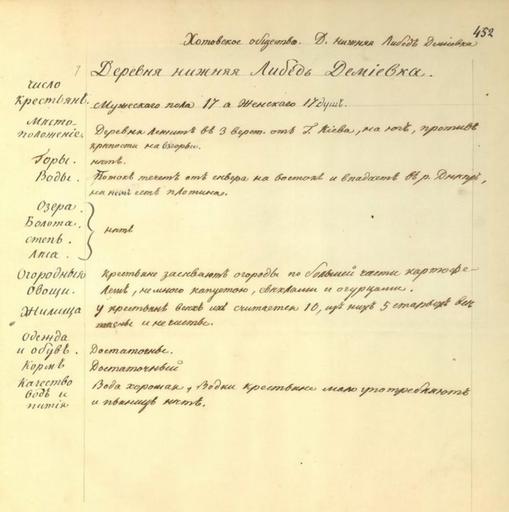 452
Хотовское общество. Д. нижняя Либедь Деміевка
Деревня нижняя Либѣдь Деміевка.
Число
Крестьянъ.
Мужескаго пола 17 а Женскаго 17 душъ.
Мѣсто-
положеніе.
Деревня лежитъ въ 3 верст. отъ Г. Кіева, на югъ, противъ
крѣпости на взгорьи.
Горы.
нѣтъ.
Воды.
Потокъ течетъ отъ сѣвера на востокъ и впадаетъ въ р. Днепръ,
на немъ есть плотина.
Озера.
Болота.
степь.
Лѣса.
нѣтъ
Огородныя
Овощи.
Крестьяне засѣваютъ огороды по большей части картофе-
лемъ, немного капустою, свеклами и огурцами.
Жилища
У крестьянъ всѣхъ избъ считается 10, изъ нихъ 5 старыхъ
и нечистые.
Одежда
и обувь.
Достаточные.
Кормъ
Достаточный
Качество
водъ и
питія
Вода хорошая, Водки крестьяне мало употребляютъ
и пьяницъ нѣтъ.